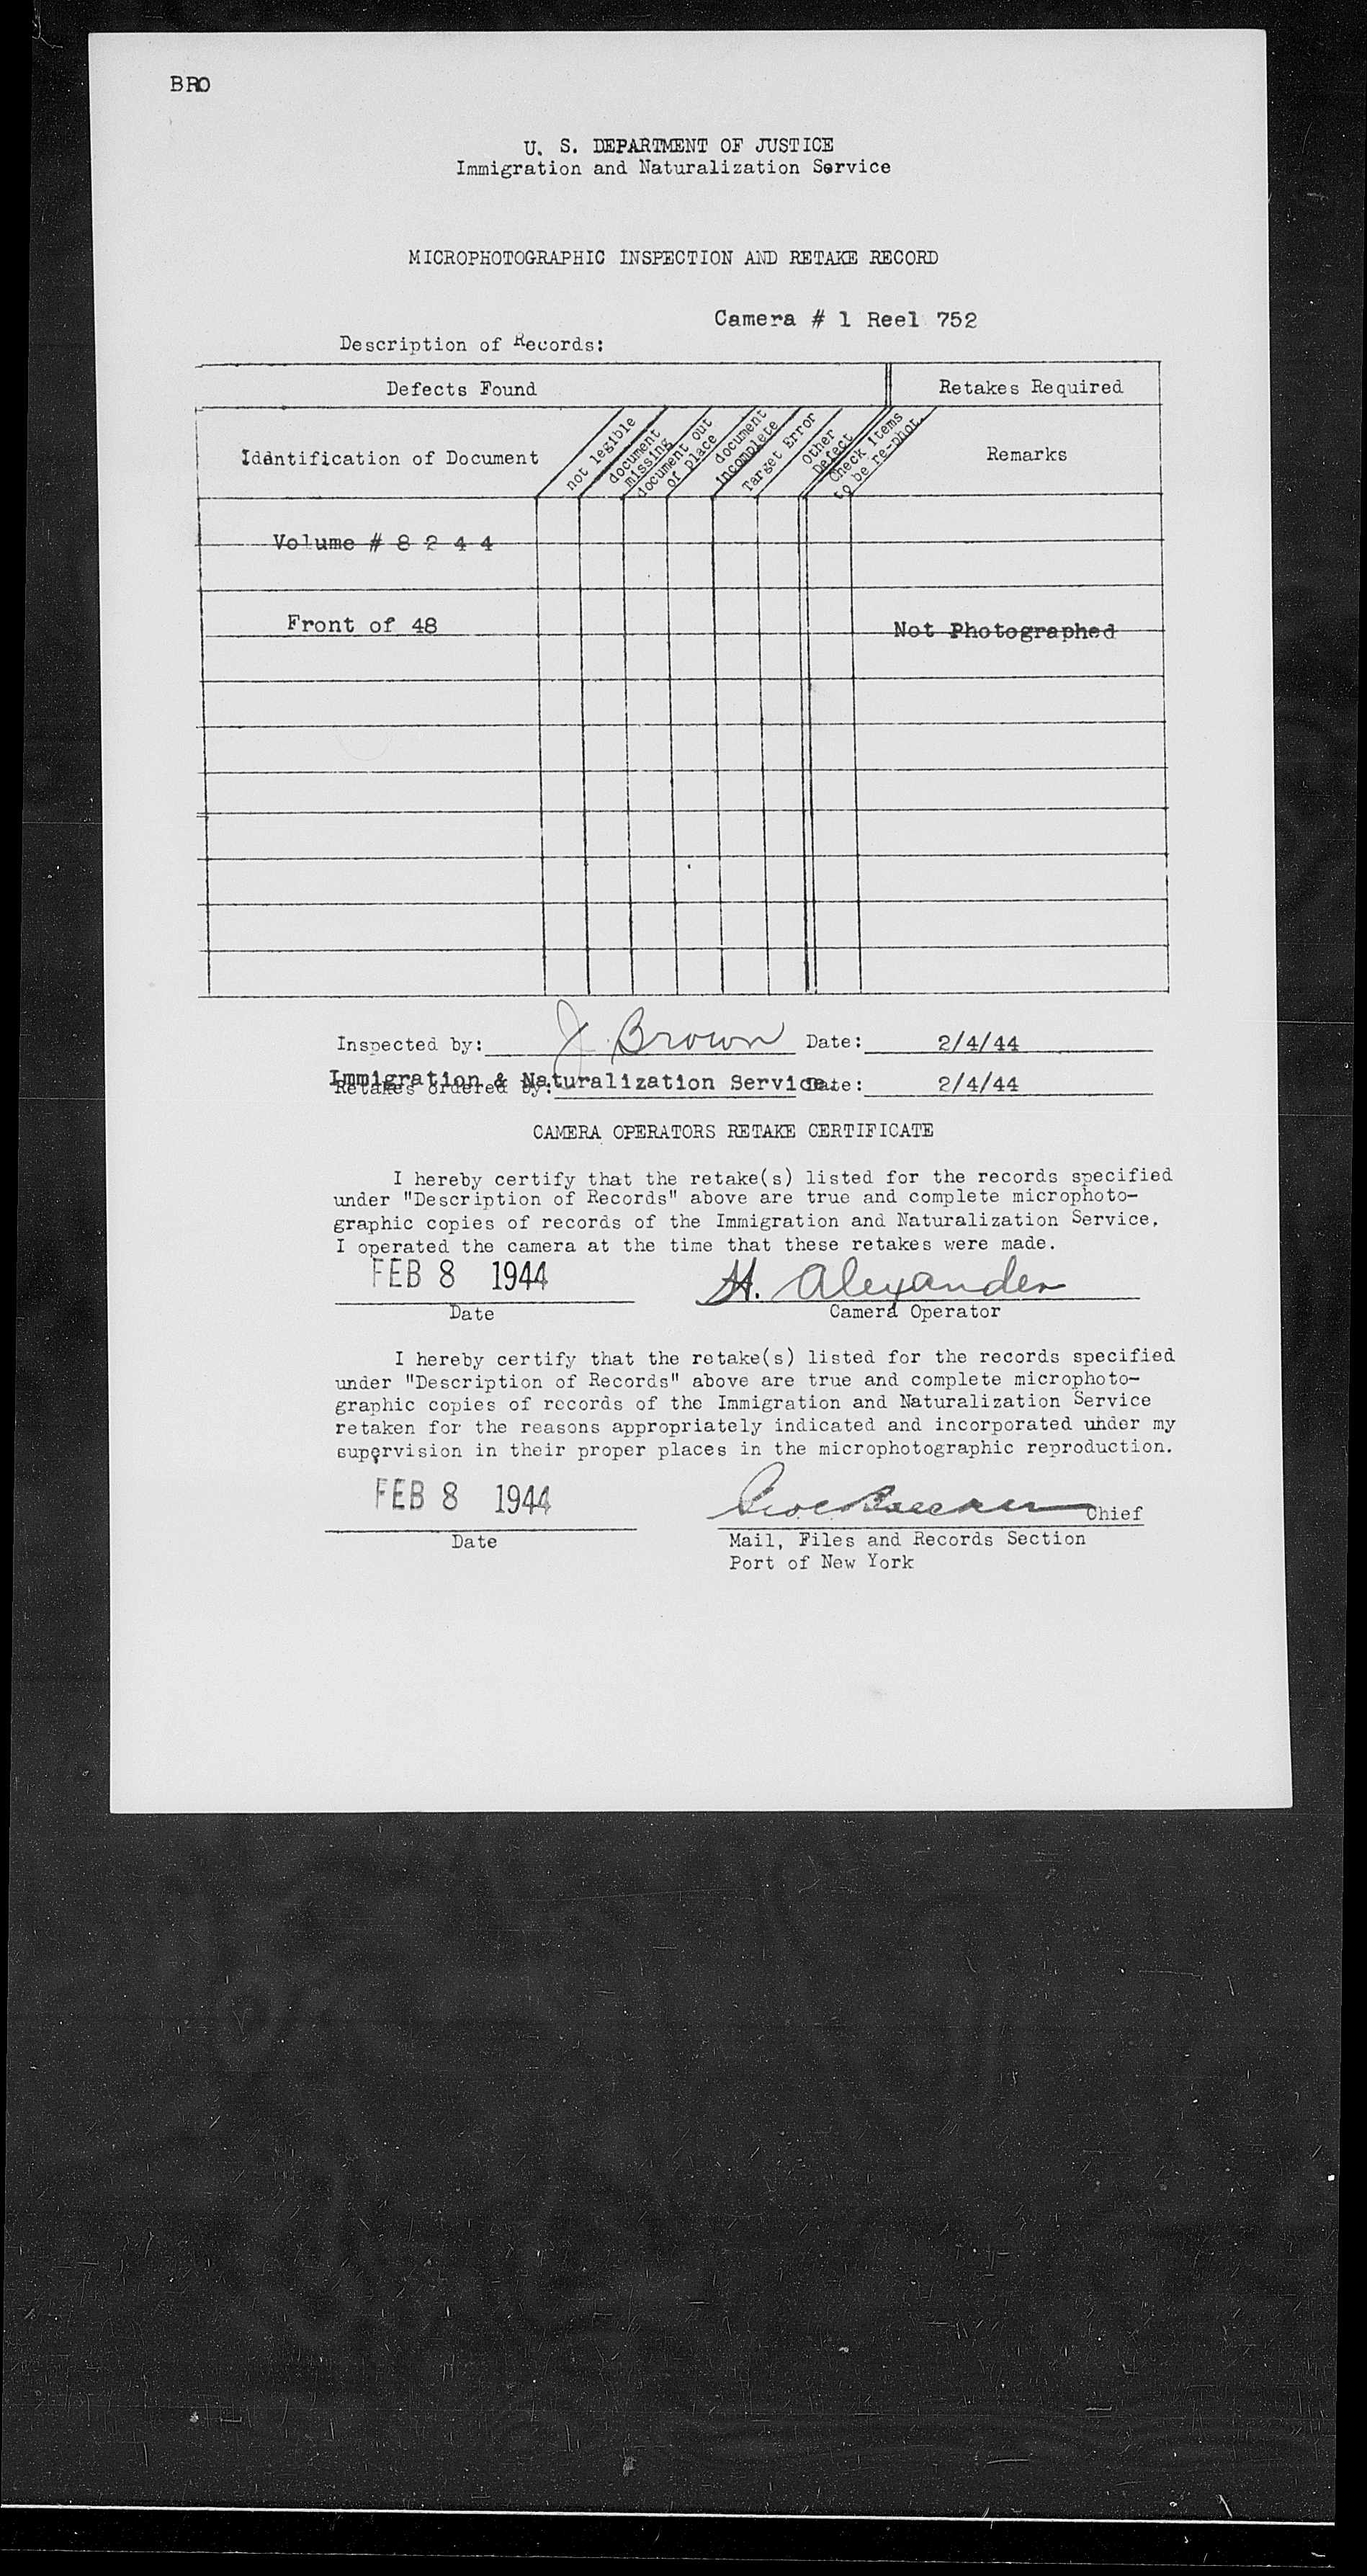 BRO
U. S. DEPARTMENT OF JUSTICE
Immigration and Naturalization Service
MICROPHOTOGRAPHIC INSPECTION AND RETAKE RECORD
Camera # 1 Reel 752
Description of Records:
Defects Found
Retakes Required
Identification of Document
not legible
document
missing
document out
of place
document
incomplete
Target Error
Other
Defect
Check Items
to be re-phot.
Remarks
Volume # 8 2 4 4
Front of 48
Not Photographed
Inspected by: J. Brown Date: 2/4/44
Retakes ordered by: Immigration & Naturalization Service Date: 2/4/44
CAMERA OPERATORS RETAKE CERTIFICATE
I hereby certify that the retake(s) listed for the records specified
under "Description of Records" above are true and complete microphoto-
graphic copies of records of the Immigration and Naturalization Service.
I operated the camera at the time that these retakes were made.
FEB 8 1944 H. Alexander
Date Camera Operator
I hereby certify that the retake(s) listed for the records specified
under "Description of Records" above are true and complete microphoto-
graphic copies of records of the Immigration and Naturalization Service
retaken for the reasons appropriately indicated and incorporated under my
supervision in their proper places in the microphotographic reproduction.
FEB 8 1944 Chief
Date Mail, Files and Records Section
Port of New York